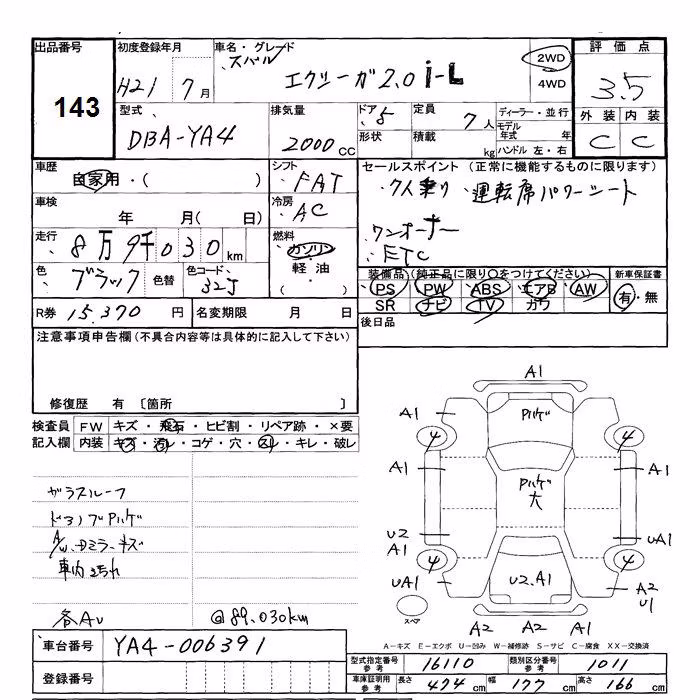 出品番号
143
初度登録年月
H21 7月
車名・グレード
スバル
エクシーガ2.0 i-L
2WD
4WD
評価点
3.5
外装 内装
C C
型式
DBA-YA4
排気量
2000cc
ドア 5
形状
定員 7人
積載 kg
ディーラー・並行
モデル年式 年
ハンドル 左・右
車歴
自家用・( )
シフト
FAT
セールスポイント (正常に機能するものに限ります)
・7人乗り ・運転席パワーシート
・ワンオーナー
・ETC
車検
年 月(日)
冷房
AC
走行
8万9千030km
燃料
ガソリン
軽油
色 ブラック
色替
色コード 32J
装備品(純正品に限り○をつけてください)
PS PW ABS エアB AW
SR ナビ TV カワ
新車保証書
有・無
R券 15,370円
名変期限 月 日
後日品
注意事項申告欄(不具合内容等は具体的に記入して下さい)
修復歴 有 〔箇所 〕
検査員記入欄
FW キズ・飛石・ヒビ割・リペア跡・×要
内装 キズ・汚レ・コゲ・穴・スレ・キレ・破レ
ガラスルーフ
A/W、Dミラーキズ
車内よごれ
各AU
@89,030km
A1
A1 A1
4 4
A1 A1
U2 A1
UA1
4 4
UA1
A2 U1
U2、A1
A2 A2 A1
スペア
A-キズ E-エクボ U-凹み W-補修跡 S-サビ C-腐食 XX-交換済
車台番号 YA4-006391
登録番号
型式指定番号参考 16110
類別区分番号参考 1011
車庫証明用参考
長さ 474cm
幅 177cm
高さ 166cm